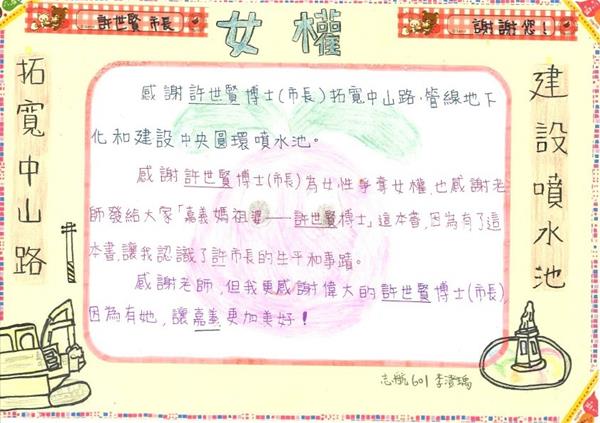 許世賢市長
女權
謝謝您!
拓寬中山路
建設噴水池
感謝許世賢博士(市長)拓寬中山路、管線地下
化和建設中央圓環噴水池。
感謝許世賢博士(市長)為女性爭奪女權,也感謝老
師發給大家「嘉義媽祖婆——許世賢博士」這本書,因為有了這
本書,讓我認識了許市長的生平和事蹟。
感謝老師,但我更感謝偉大的許世賢博士(市長),
因為有她,讓嘉義更加美好!
志航601 李